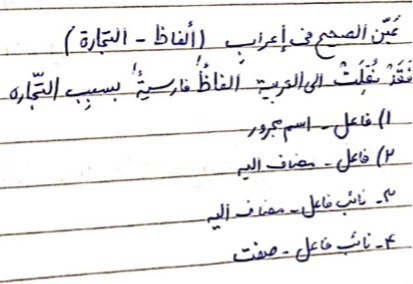 عَيّن الصحيح فی إعرابِ (ألفاظ - التجارة)
فَقَدْ نُقِلَتْ الی العربیة ألفاظٌ فارسیةٌ بسبب التّجاره
۱) فاعل - اسم مجرور
۲) فاعل - مضاف الیه
۳- نائب فاعل - مضاف الیه
۴- نائب فاعل - صفت